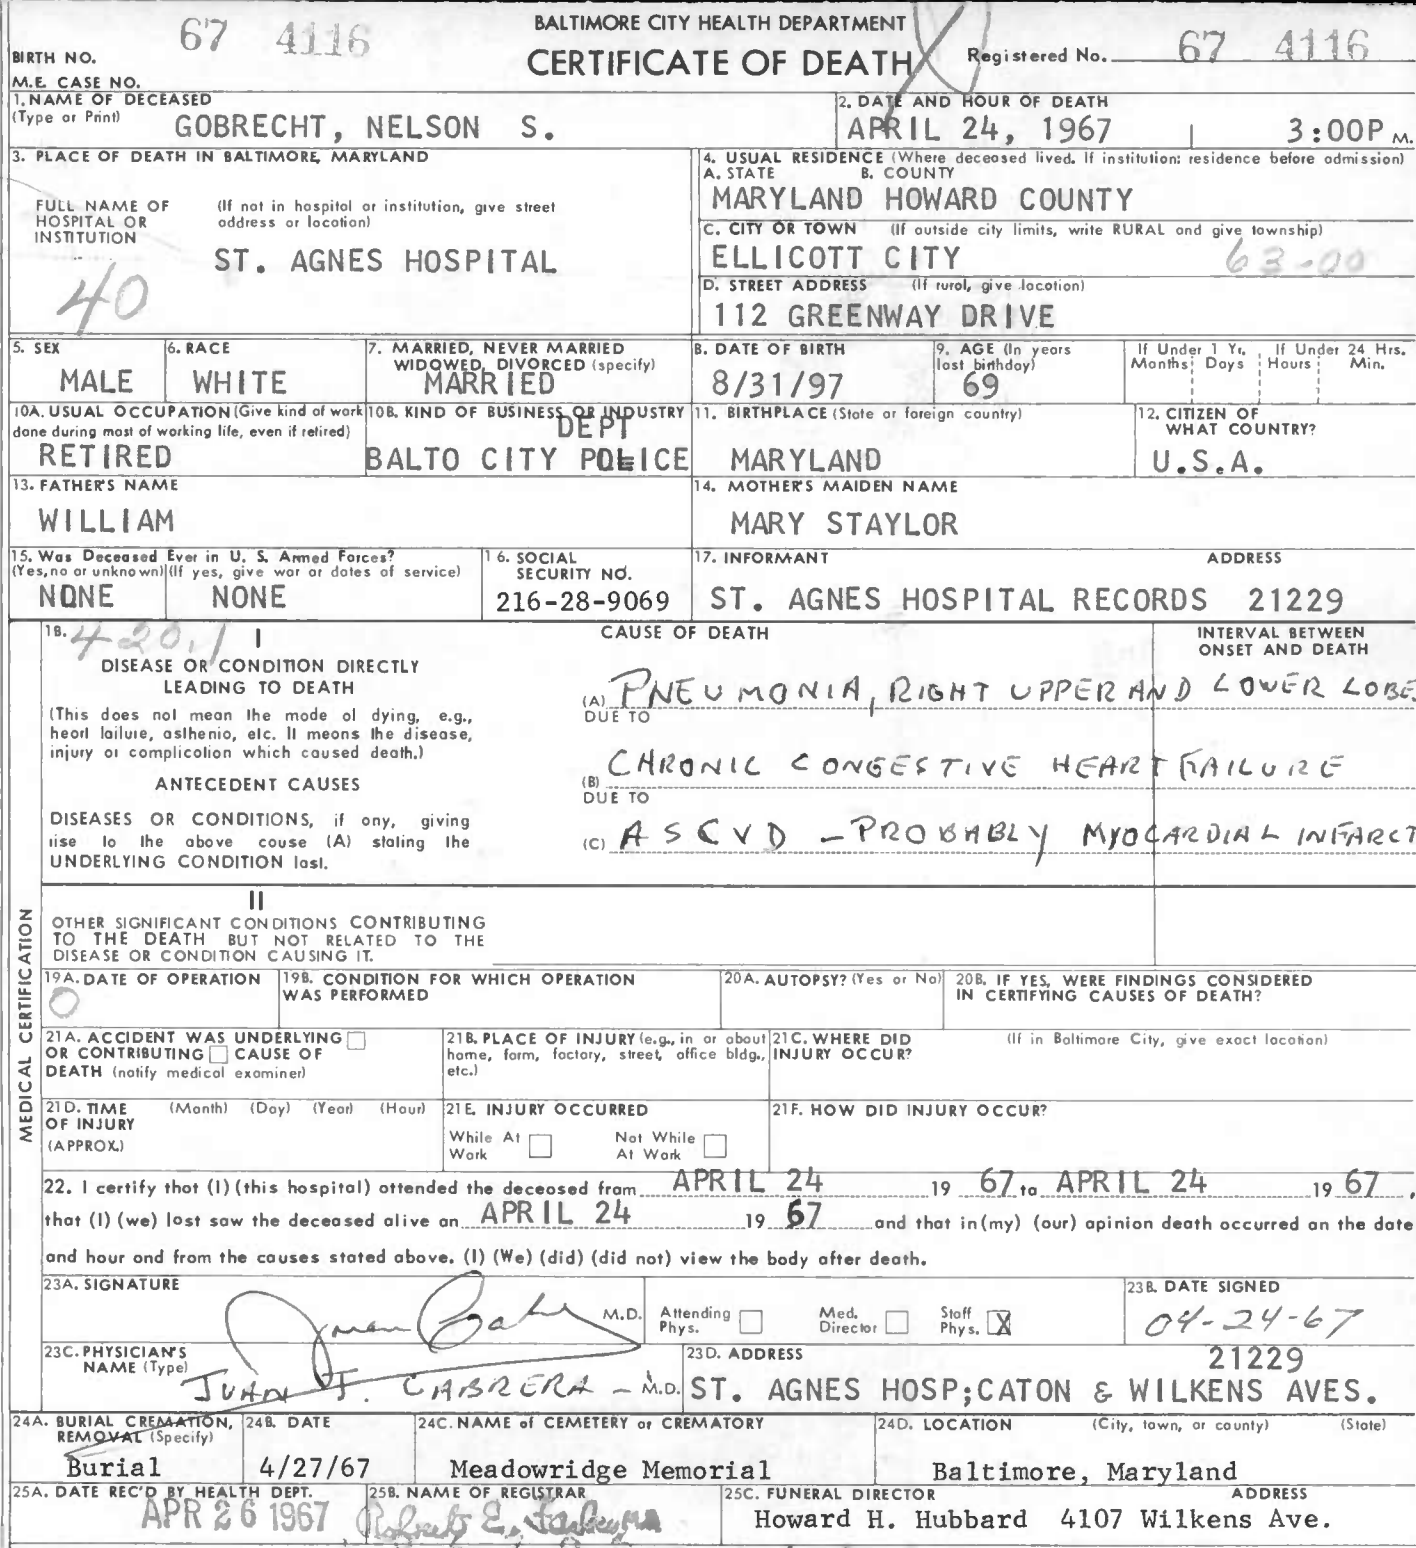 BALTIMORE CITY HEALTH DEPARTMENT
67 4116
BIRTH NO.
CERTIFICATE OF DEATH
Registered No. 67 4116
M.E. CASE NO.
1. NAME OF DECEASED
(Type or Print)
GOBRECHT, NELSON S.
2. DATE AND HOUR OF DEATH
APRIL 24, 1967 3:00P M.
3. PLACE OF DEATH IN BALTIMORE, MARYLAND
FULL NAME OF HOSPITAL OR INSTITUTION
(If not in hospital or institution, give street address or location)
ST. AGNES HOSPITAL
40
4. USUAL RESIDENCE (Where deceased lived. If institution: residence before admission)
A. STATE B. COUNTY
MARYLAND HOWARD COUNTY
C. CITY OR TOWN (If outside city limits, write RURAL and give township)
ELLICOTT CITY 63-00
D. STREET ADDRESS (If rural, give location)
112 GREENWAY DRIVE
5. SEX
MALE
6. RACE
WHITE
7. MARRIED, NEVER MARRIED
WIDOWED, DIVORCED (specify)
MARRIED
8. DATE OF BIRTH
8/31/97
9. AGE (In years last birthday)
69
If Under 1 Yr. If Under 24 Hrs.
Months Days Hours Min.
10A. USUAL OCCUPATION (Give kind of work done during most of working life, even if retired)
RETIRED
10B. KIND OF BUSINESS OR INDUSTRY
DEPT
BALTO CITY POLICE
11. BIRTHPLACE (State or foreign country)
MARYLAND
12. CITIZEN OF WHAT COUNTRY?
U.S.A.
13. FATHER'S NAME
WILLIAM
14. MOTHER'S MAIDEN NAME
MARY STAYLOR
15. Was Deceased Ever in U. S. Armed Forces?
(Yes, no or unknown) (If yes, give war or dates of service)
NONE NONE
16. SOCIAL SECURITY NO.
216-28-9069
17. INFORMANT ADDRESS
ST. AGNES HOSPITAL RECORDS 21229
MEDICAL CERTIFICATION
18. 420.1 I
CAUSE OF DEATH
INTERVAL BETWEEN ONSET AND DEATH
DISEASE OR CONDITION DIRECTLY
LEADING TO DEATH
(This does not mean the mode of dying, e.g.,
heart failure, asthenia, etc. It means the disease,
injury or complication which caused death.)
ANTECEDENT CAUSES
DISEASES OR CONDITIONS, if any, giving
rise to the above cause (A) stating the
UNDERLYING CONDITION last.
(A) PNEUMONIA, RIGHT UPPER AND LOWER LOBE
DUE TO
(B) CHRONIC CONGESTIVE HEART FAILURE
DUE TO
(C) ASCVD - PROBABLY MYOCARDIAL INFARCT
II
OTHER SIGNIFICANT CONDITIONS CONTRIBUTING
TO THE DEATH BUT NOT RELATED TO THE
DISEASE OR CONDITION CAUSING IT.
19A. DATE OF OPERATION
0
19B. CONDITION FOR WHICH OPERATION WAS PERFORMED
20A. AUTOPSY? (Yes or No)
20B. IF YES, WERE FINDINGS CONSIDERED IN CERTIFYING CAUSES OF DEATH?
21A. ACCIDENT WAS UNDERLYING
OR CONTRIBUTING CAUSE OF
DEATH (notify medical examiner)
21B. PLACE OF INJURY (e.g., in or about home, farm, factory, street, office bldg., etc.)
21C. WHERE DID INJURY OCCUR?
(If in Baltimore City, give exact location)
21D. TIME OF INJURY (APPROX.)
(Month) (Day) (Year) (Hour)
21E. INJURY OCCURRED
While At Work
Not While At Work
21F. HOW DID INJURY OCCUR?
22. I certify that (I) (this hospital) attended the deceased from APRIL 24 19 67 to APRIL 24 19 67,
that (I) (we) last saw the deceased alive on APRIL 24 19 67 and that in (my) (our) opinion death occurred on the date
and hour and from the causes stated above. (I) (We) (did) (did not) view the body after death.
23A. SIGNATURE
Juan Cabrera M.D.
Attending Phys.
Med. Director
Staff Phys. X
23B. DATE SIGNED
04-24-67
23C. PHYSICIAN'S NAME (Type)
JUAN J. CABRERA - M.D.
23D. ADDRESS 21229
ST. AGNES HOSP;CATON & WILKENS AVES.
24A. BURIAL CREMATION, REMOVAL (Specify)
Burial
24B. DATE
4/27/67
24C. NAME of CEMETERY or CREMATORY
Meadowridge Memorial
24D. LOCATION (City, town, or county) (State)
Baltimore, Maryland
25A. DATE REC'D BY HEALTH DEPT.
APR 26 1967
25B. NAME OF REGISTRAR
Robert E.
25C. FUNERAL DIRECTOR ADDRESS
Howard H. Hubbard 4107 Wilkens Ave.